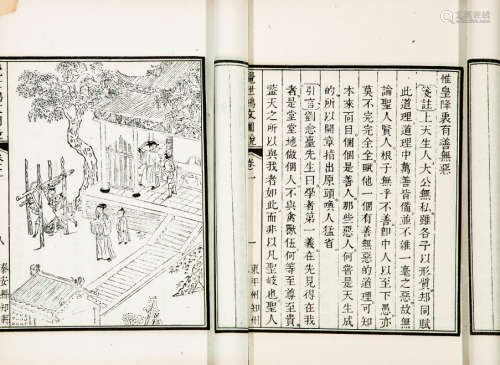 惟皇降衷有善無惡
淺註上天生人大公無私雖各予以形質却同賦
此道理道理中萬善皆備並不雜一毫之惡故無
論聖人賢人根子無乎不善卽中人以至下愚亦
莫不完完全全賦他一個有善無惡的道理可知
本來面目個個是善人那些惡人何嘗是天生成
的所以開章揭出原頭喚人猛省
引言劉念臺先生曰學者第一義在先見得在我
者是堂堂地做個人不與禽獸伍何等至尊至貴
蓋天之所以與我者如此而非以凡聖岐也聖人
覺世 文圖說
卷一
一
東平州知州
八
泰安縣知縣